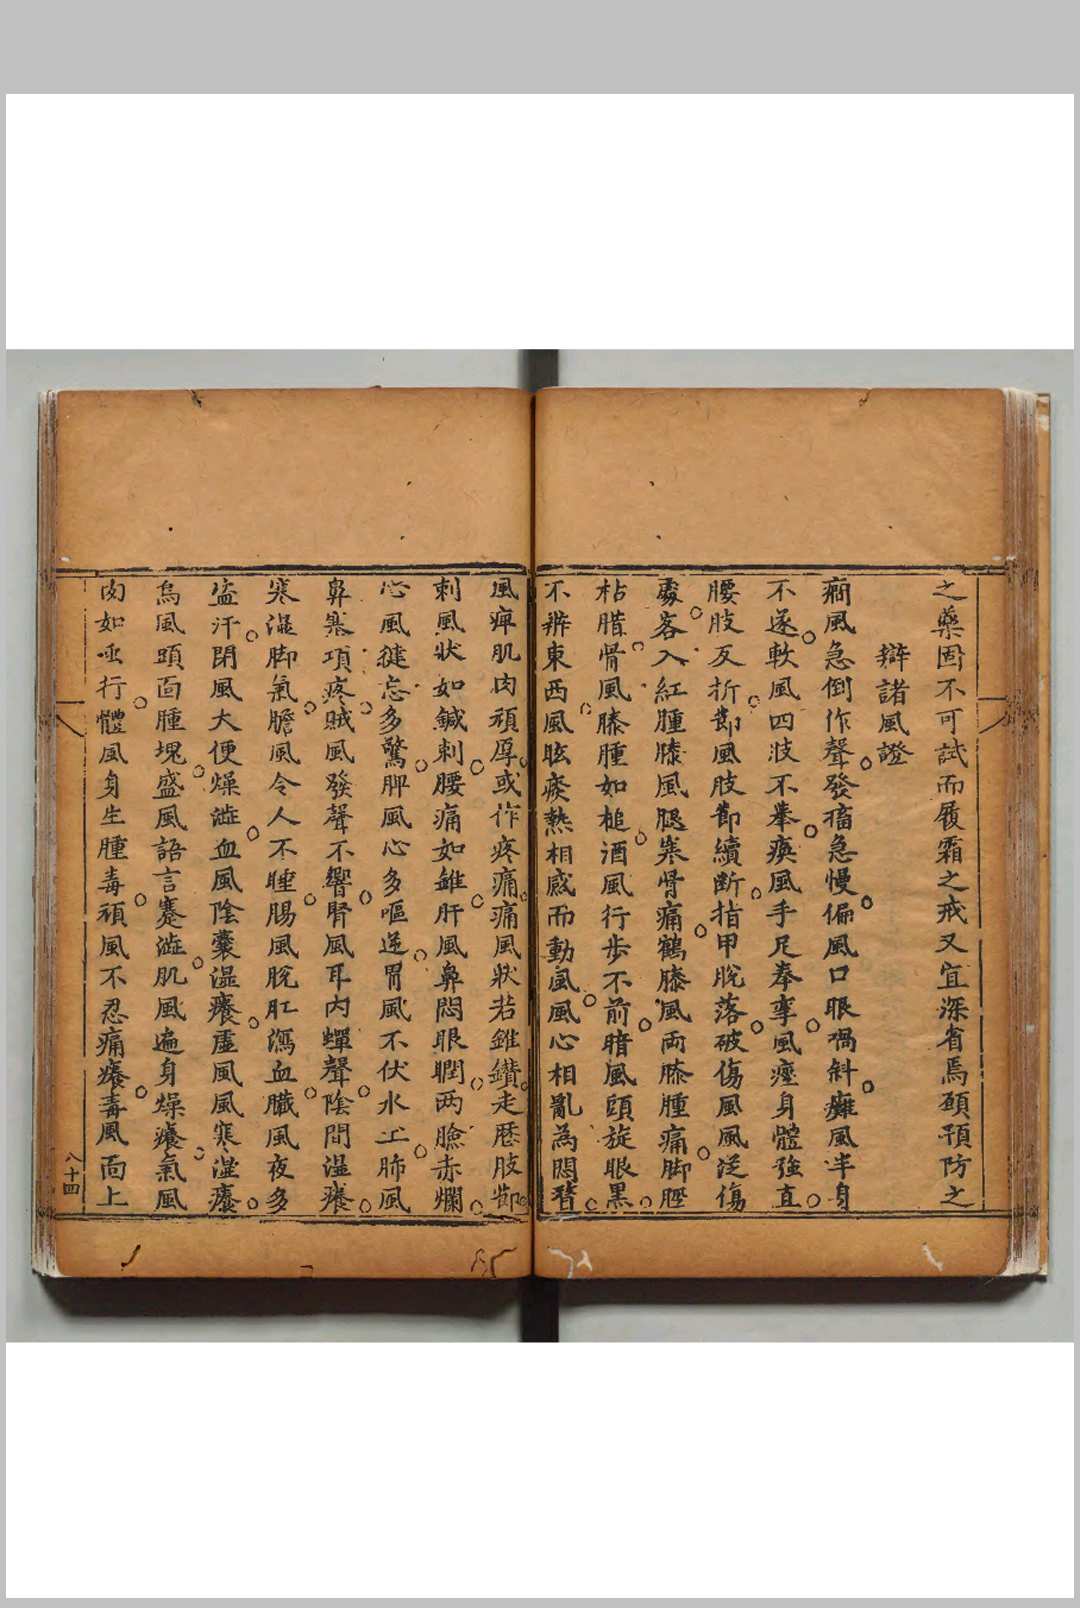 之藥固不可試而履霜之戒又宜深省焉預預防之
辯諸風證
癇風急倒作聲發搐急慢偏風口眼喎斜癱風半身
不遂軟風四肢不舉瘓風手足拳攣風痙身體強直
腰肢反折節風肢節續斷指甲脫落破傷風風從傷
處客入紅腫膝風腿寒骨痛鶴膝風兩膝腫痛脚脛
枯腊骨風膝腫如槌酒風行步不前暗風頭旋眼黑
不辨東西風眩痰熱相感而動風風心相亂為悶瞀
風痺肌肉頑厚或作疼痛痛風狀若錐鑽走歷肢節
刺風狀如鍼刺腰痛如錐肝風鼻悶眼瞤两臉赤爛
心風健忘多驚脾風心多嘔逆胃風不伏水土肺風
鼻塞項疼賊風發聲不響腎風耳内蟬聲陰間濕癢
寒濕脚氣膽風令人不睡腸風脫肛瀉血臟風夜多
盜汗閉風大便燥澁血風陰囊濕癢虛風風寒濕癢
烏風頭面腫塊盛風語言蹇澁肌風遍身燥癢氣風
肉如虫行體風身生腫毒頑風不忍痛癢毒風面上
八十四